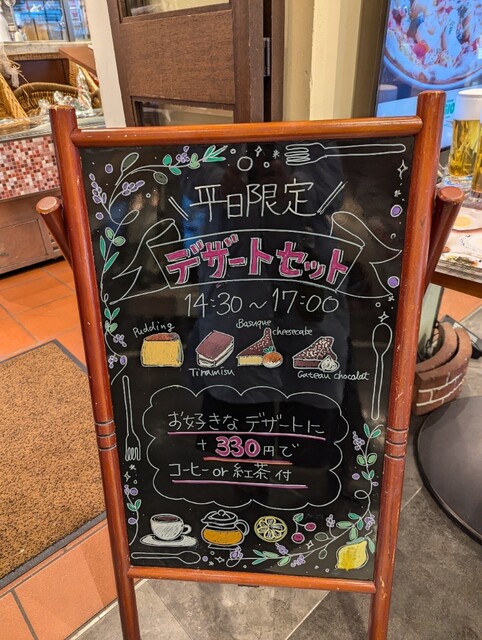 平日限定
デザートセット
14:30～17:00
Pudding
Tiramisu
Basuque
cheesecake
Gateau chocolat
お好きなデザートに
+330円で
コーヒーor紅茶付